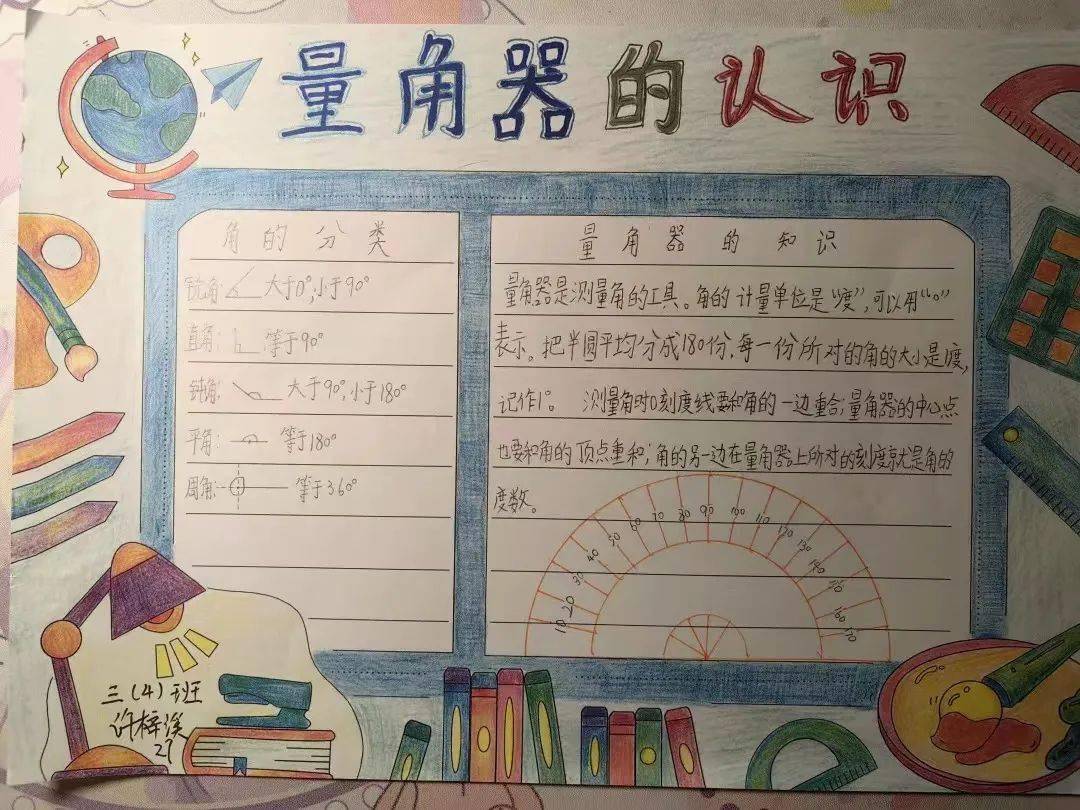 量角器的认识
角的分类
锐角: 大于0°,小于90°
直角: 等于90°
钝角: 大于90°,小于180°
平角: 等于180°
周角: 等于360°
量角器的知识
量角器是测量角的工具。角的计量单位是“度”,可以用“°”
表示。把半圆平均分成180份,每一份所对的角的大小是1度,
记作1°。 测量角时0刻度线要和角的一边重合;量角器的中心点
也要和角的顶点重和;角的另一边在量角器上所对的刻度就是角的
度数。
10 20 30 40 50 60 70 80 90 100 110 120 130 140 150 160 170
三(4)班
许梓溪
27